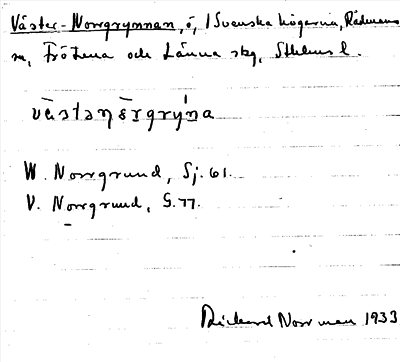 Väster-Norrgrynnan, ö, i Svenska högarna, Rådmans
m, Frötuna och Länna skg, Sthlms l.
västanǝrgrýna
W. Norrgrund, Sj. 61.
V. Norrgrund, G. 77.
Rickard Norrman 1933